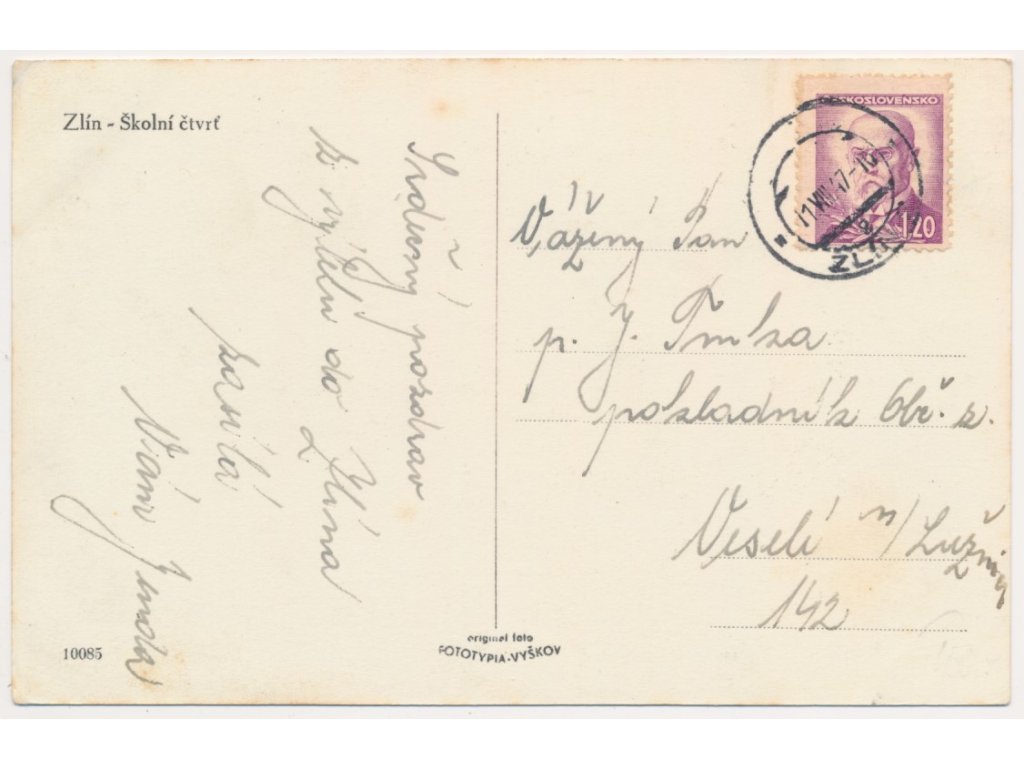 Zlín - Školní čtvrť
Srdečný pozdrav
z výletu do Zlína
zasílá
Váni
10085
original foto
FOTOTYPIA-VYŠKOV
ČESKOSLOVENSKO
1.20
11.VIII.47-10
ZLÍN
Vážený Pán
p. J.
pokladník Obč. z.
Veselí n/Lužnicí
142